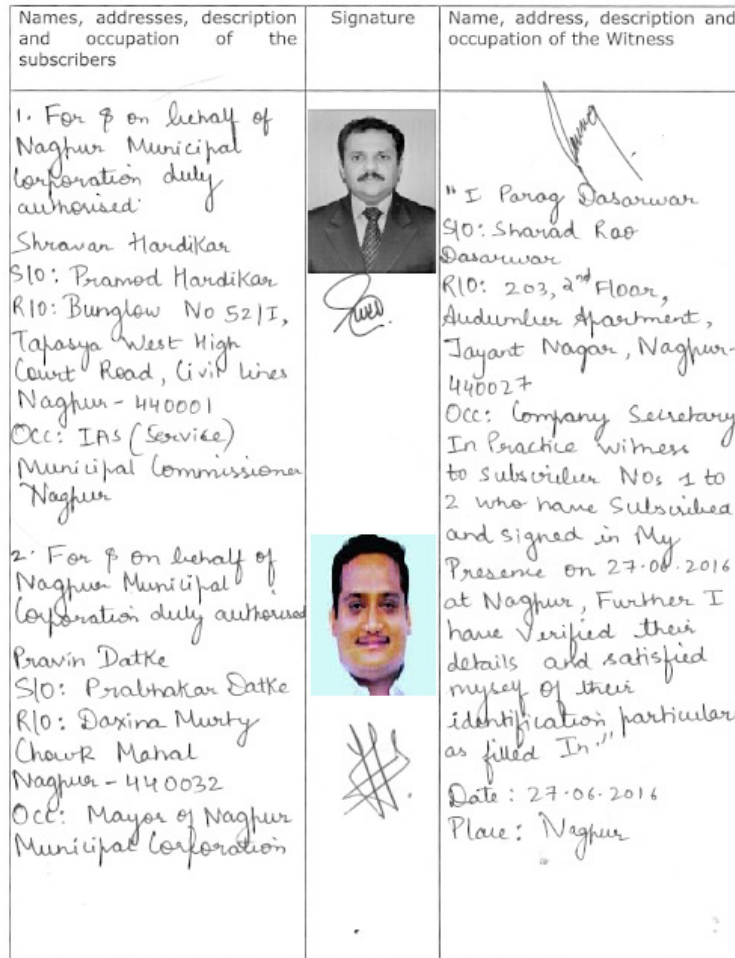 Names, addresses, description
and occupation of the
subscribers
Signature
Name, address, description and
occupation of the Witness
1. For & on behalf of
Nagpur Municipal
Corporation duly
authorised
Shravan Hardikar
S/O: Pramod Hardikar
R/O: Bunglow No 52/I,
Tapasya West High
Court Road, Civil lines
Nagpur - 440001
Occ: IAS (Service)
Municipal Commissioner
Nagpur
2. For & on behalf of
Nagpur Municipal
Corporation duly authorised
Pravin Datke
S/O: Prabhakar Datke
R/O: Daxina Murty
Chowk Mahal
Nagpur - 440032
Occ: Mayor of Nagpur
Municipal Corporation
"I Parag Dasarwar
S/O: Sharad Rao
Dasarwar
R/O: 203, 2nd Floor,
Audumber Apartment,
Jayant Nagar, Nagpur-
440027
Occ: Company Secretary
In Practice witness
to subscriber Nos 1 to
2 who have Subscribed
and signed in My
Presence on 27.06.2016
at Nagpur, Further I
have Verified their
details and satisfied
myself of their
identification particular
as filled In."
Date: 27.06.2016
Place: Nagpur